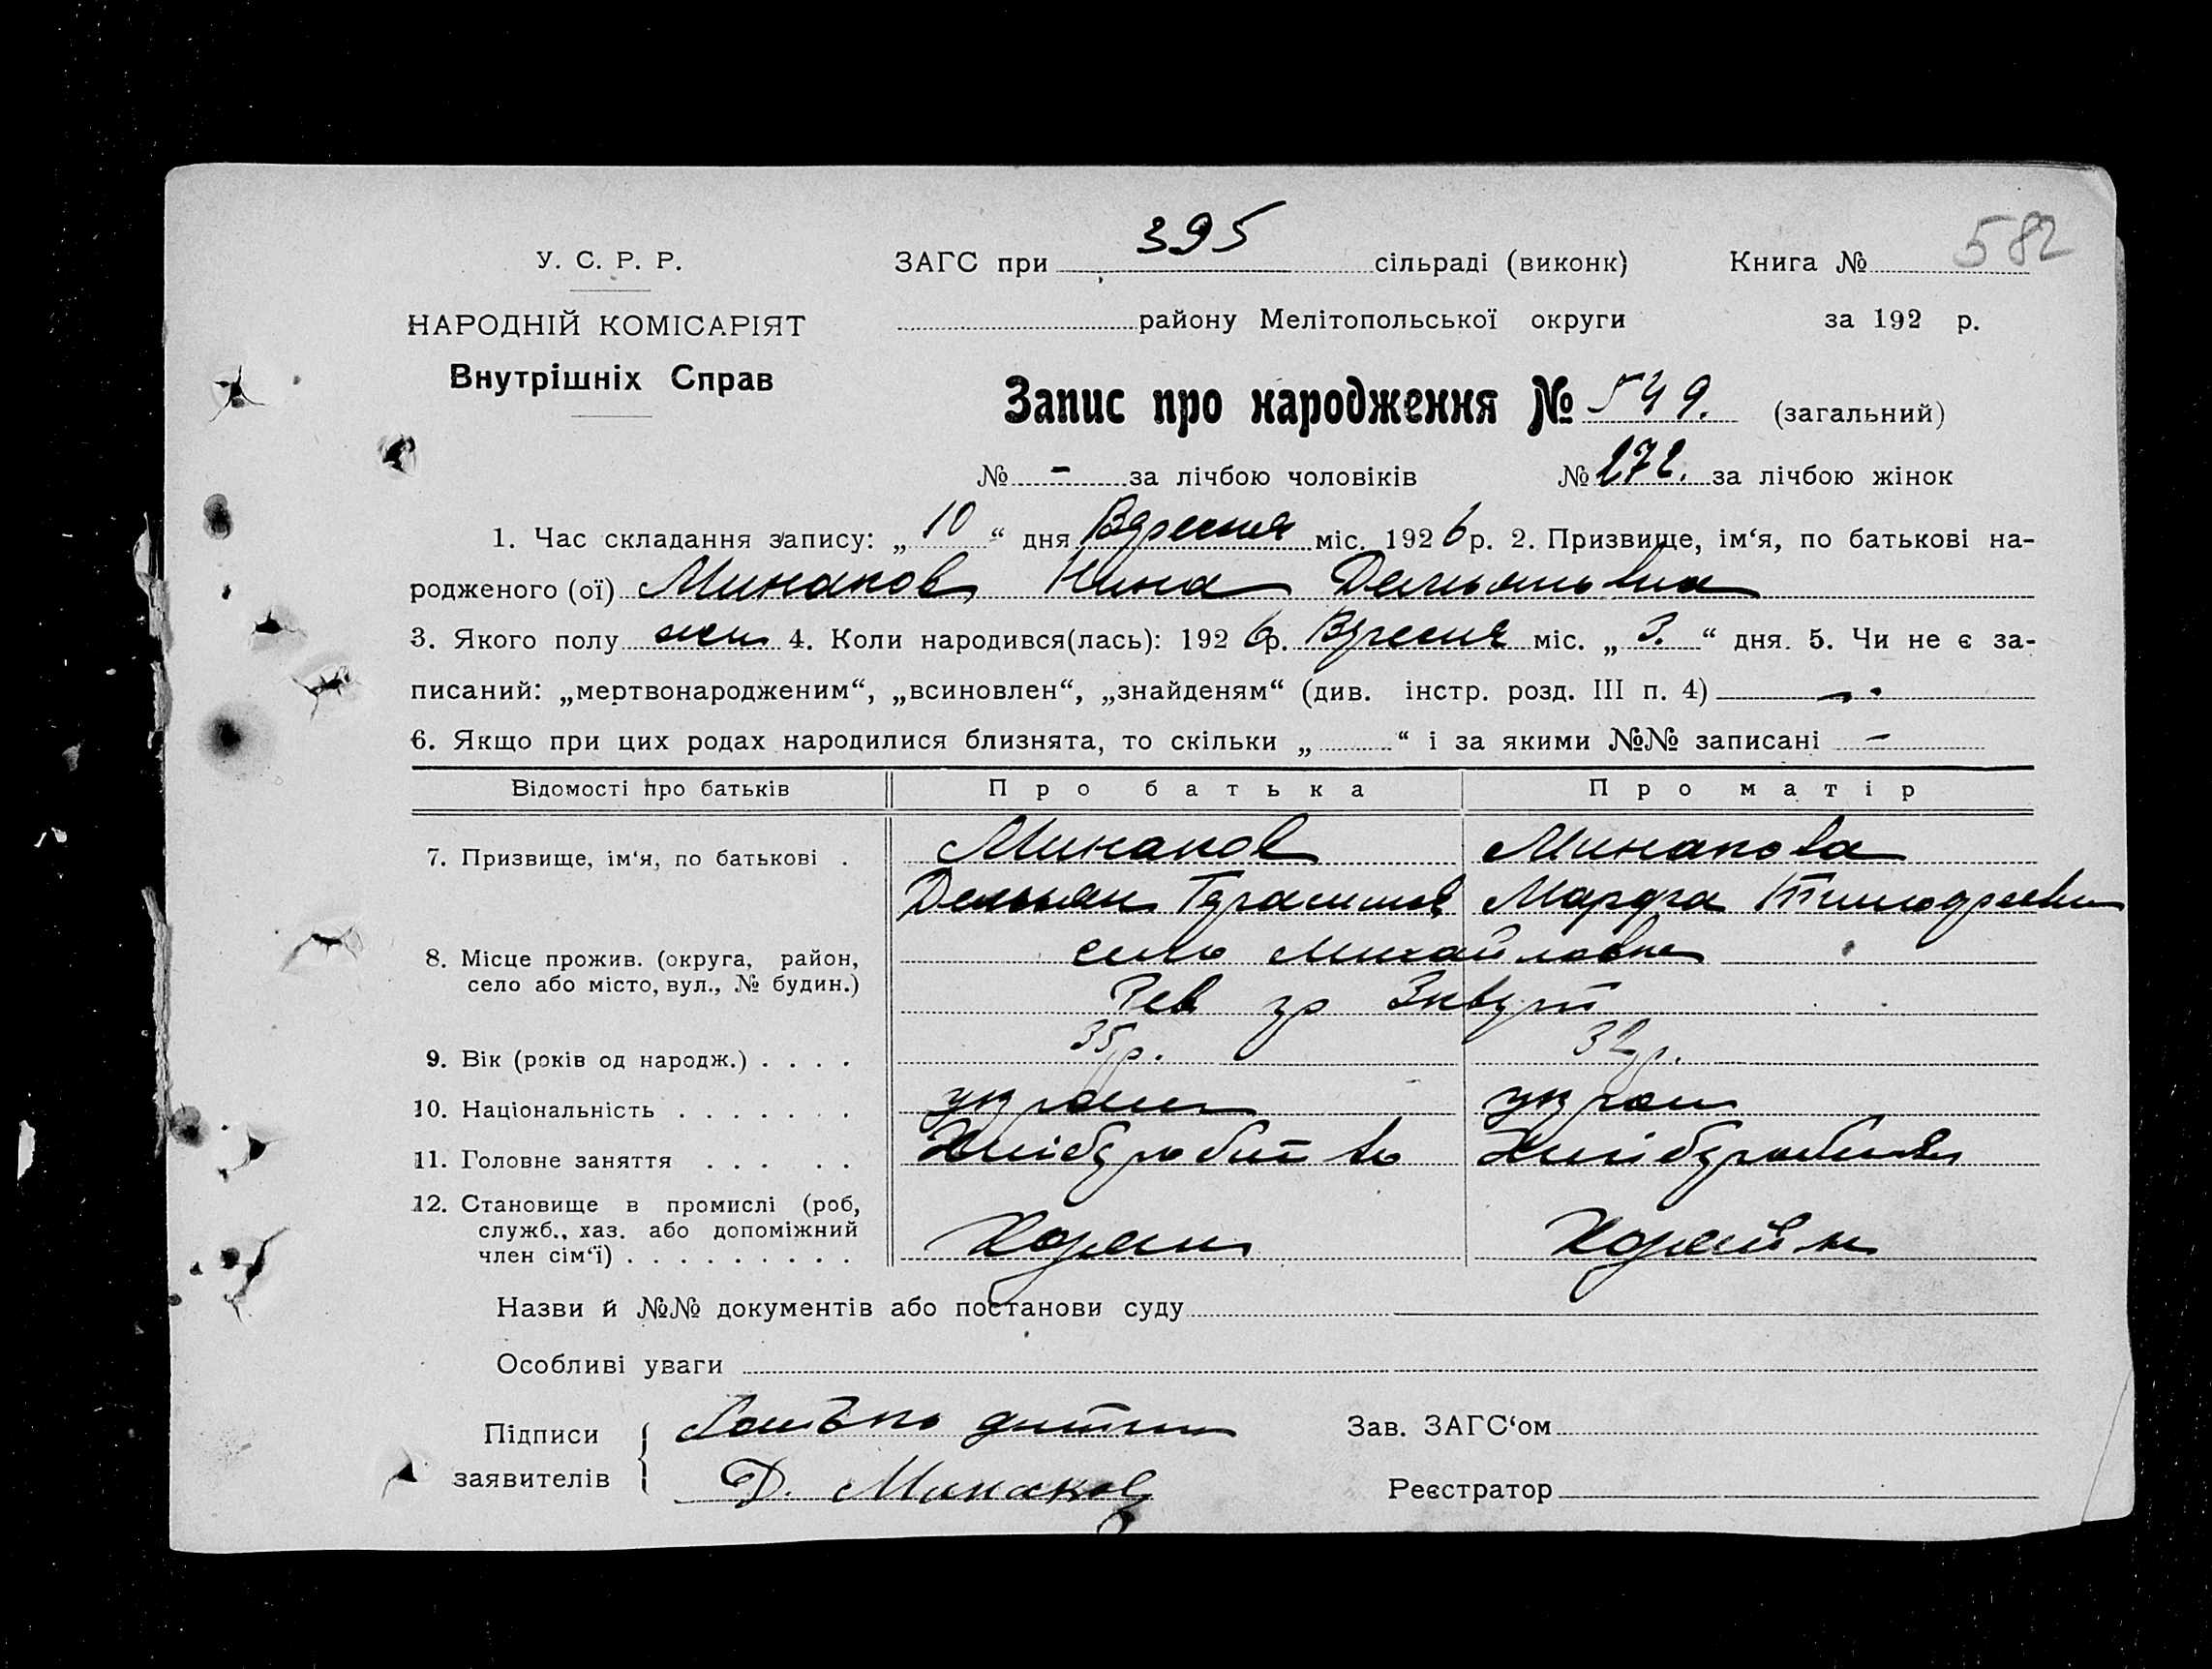 395
582
У. С. Р. Р. ЗАГС при сільраді (виконк) Книга №
НАРОДНІЙ КОМІСАРІЯТ району Мелітопольської округи за 192 р.
Внутрішніх Справ
Запис про народження № 549. (загальний)
№ - за лічбою чоловіків № 272. за лічбою жінок
1. Час складання запису: „ 10 “ дня Вересня міс. 1926 р. 2. Призвище, ім‘я, по батькові на-
родженого (ої) Минаков Нина Демьяновна
3. Якого полу жен 4. Коли народився(лась): 1926 р. Вересня міс. „ 3. “ дня. 5. Чи не є за-
писаний: „мертвонародженим“, „всиновлен“, „знайденям“ (див. інстр. розд. III п. 4)
6. Якщо при цих родах народилися близнята, то скільки „ “ і за якими №№ записані -
Відомості про батьків Про батька Про матір
7. Призвище, ім‘я, по батькові . Минаков Минакова
Демьян Герасимов Марфа
8. Місце прожив. (округа, район, село або місто, вул., № будин.) село Михайловка
9. Вік (років од народж.) . . . . 35 р. 32 р.
10. Національність . . . . . . . украин украин
11. Головне заняття . . . . . Хліборобство
12. Становище в промислі (роб, служб., хаз. або допоміжний член сім‘ї) . . . . . . . . .
Назви й №№ документів або постанови суду
Особливі уваги
Підписи заявителів Батько дитини Зав. ЗАГС‘ом
Д. Минаков Реєстратор